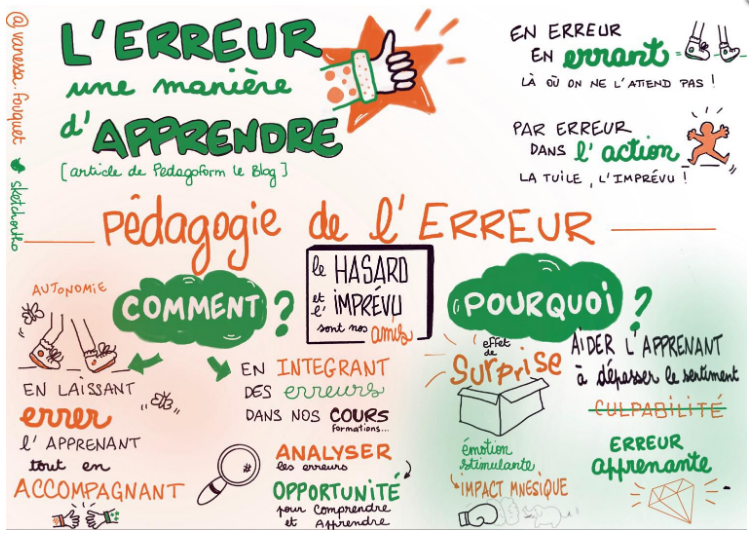 @vanessa.fouquet
sketchortho
L'ERREUR
une manière
d'APPRENDRE
[article de Pedagoform le Blog]
EN ERREUR
EN errant
LÀ OÙ ON NE L'ATTEND PAS !
PAR ERREUR
DANS l'action
LA TUILE, L'IMPRÉVU !
Pédagogie de l'ERREUR
COMMENT ?
le HASARD
et l'IMPRÉVU
sont nos amis
POURQUOI ?
AUTONOMIE
EN LAISSANT
errer
l'APPRENANT
tout en
ACCOMPAGNANT
EN INTEGRANT
DES erreurs
DANS NOS COURS
formations...
ANALYSER
les erreurs
OPPORTUNITÉ
pour Comprendre
et Apprendre
effet
de
Surprise
émotion
stimulante
IMPACT MNESIQUE
AIDER L'APPRENANT
à dépasser le sentiment
CULPABILITÉ
ERREUR
apprenante